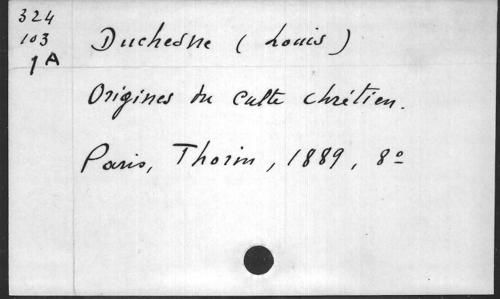 324
103
1A
Duchesne (Louis)
Origines du culte chrétien.
Paris, Thorin, 1889, 8º